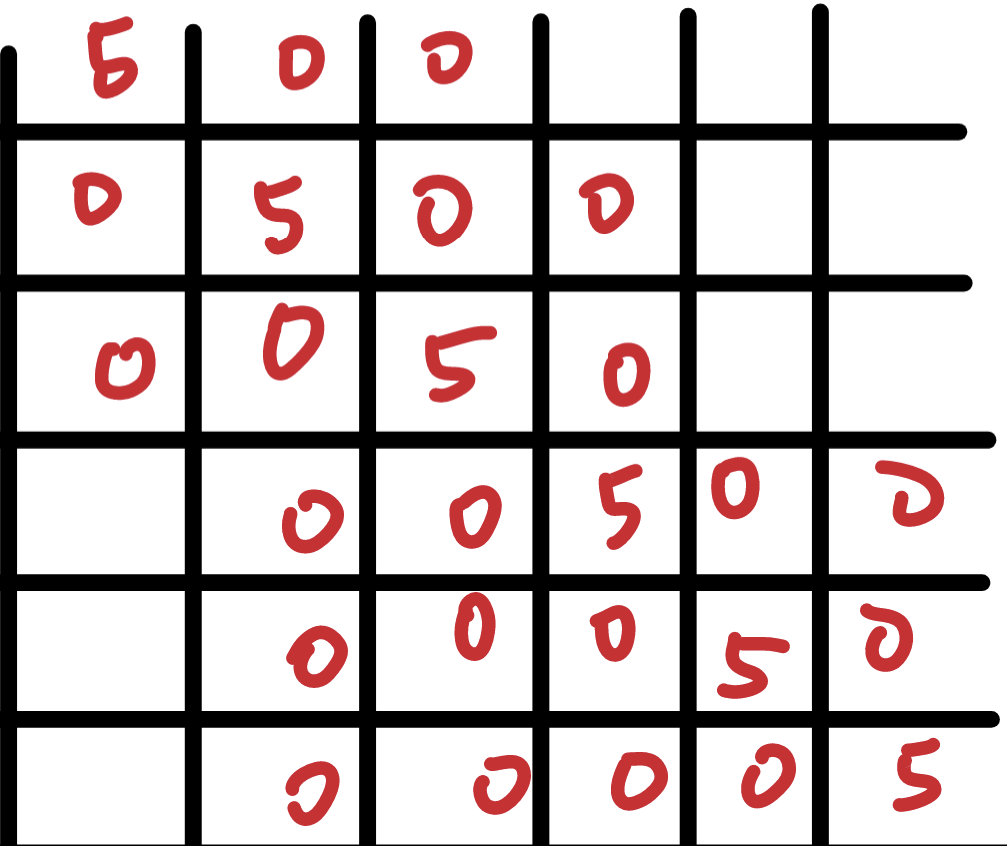 5 0 0
0 5 0 0
0 0 5 0
0 0 5 0 0
0 0 0 5 0
0 0 0 0 5